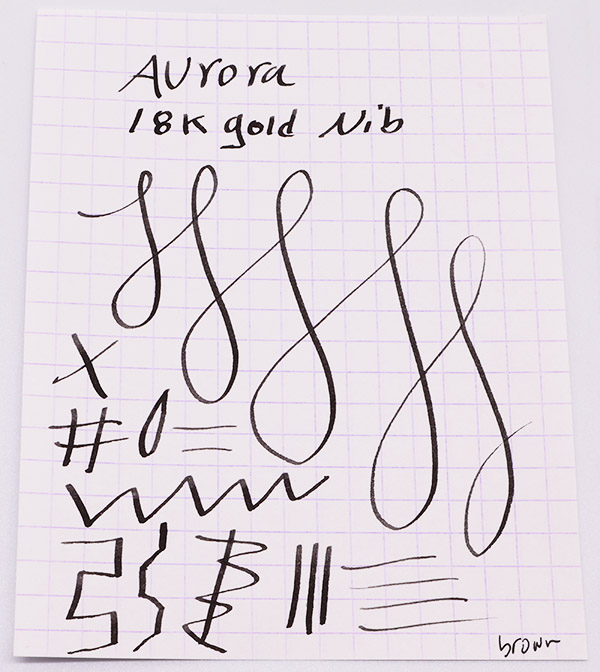 Aurora
18K gold Nib
brown